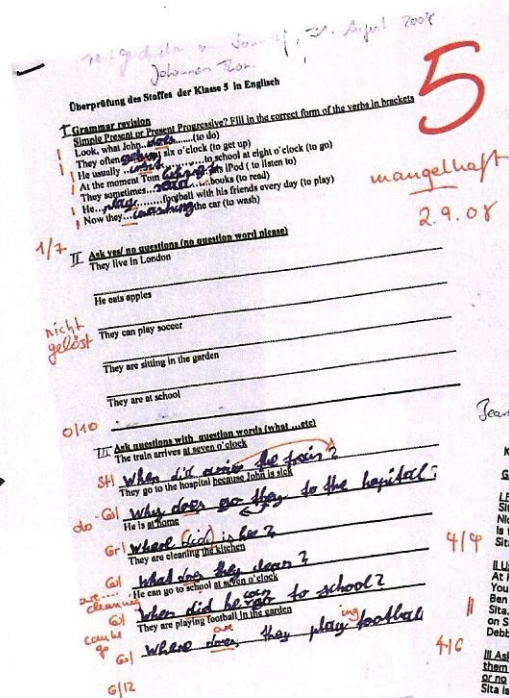 31. August 2008
Johannes Thom
Überprüfung des Stoffes der Klasse 5 in Englisch
5
mangelhaft
2.9.08
I Grammar revision
Simple Present or Present Progressive? Fill in the correct form of the verbs in brackets
Look, what John...does......(to do)
They often six o'clock (to get up)
He usually ............to school at eight o'clock (to go)
At the moment Tom his iPod ( to listen to)
They sometimes...read.....books (to read)
He...plays........football with his friends every day (to play)
Now they...washing the car (to wash)
1/7
II Ask yes/ no questions (no question word please)
They live in London
He eats apples
They can play soccer
nicht gelöst
They are sitting in the garden
They are at school
0/10
III Ask questions with question words (what ....etc)
The train arrives at seven o'clock
St When did arrive the train?
They go to the hospital because John is sick
do Gr Why does go they to the hopital?
He is at home
Gr Where (did) is he?
They are cleaning the kitchen
Gr What does they clean?
are ... cleaning
He can go to school at seven o'clock
Gr When did he can to school?
can he go
They are playing football in the garden
Gr Where does they play football
are ing
6/12
4/4
4/6